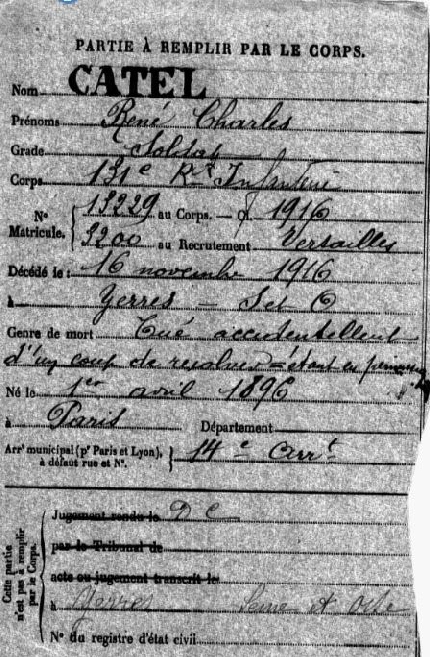 PARTIE À REMPLIR PAR LE CORPS.
Nom CATEL
Prénoms René Charles
Grade Soldat
Corps 131e Rt Infanterie
N° Matricule. 13229 au Corps. — Cl. 1916
3200 au Recrutement Versailles
Décédé le : 16 novembre 1916
à Yerres — Set O
Genre de mort Tué accidentellent
d'un coup de revolver étant en
Né le 1er avril 1896
à Paris Département
Arrt municipal (pr Paris et Lyon), à défaut rue et N°. 14e arrt
Cette partie n'est pas à remplir par le Corps.
Jugement rendu le D C
par le Tribunal de
acte ou jugement transcrit le
à Yerres Seine et Oise
N° du registre d'état civil